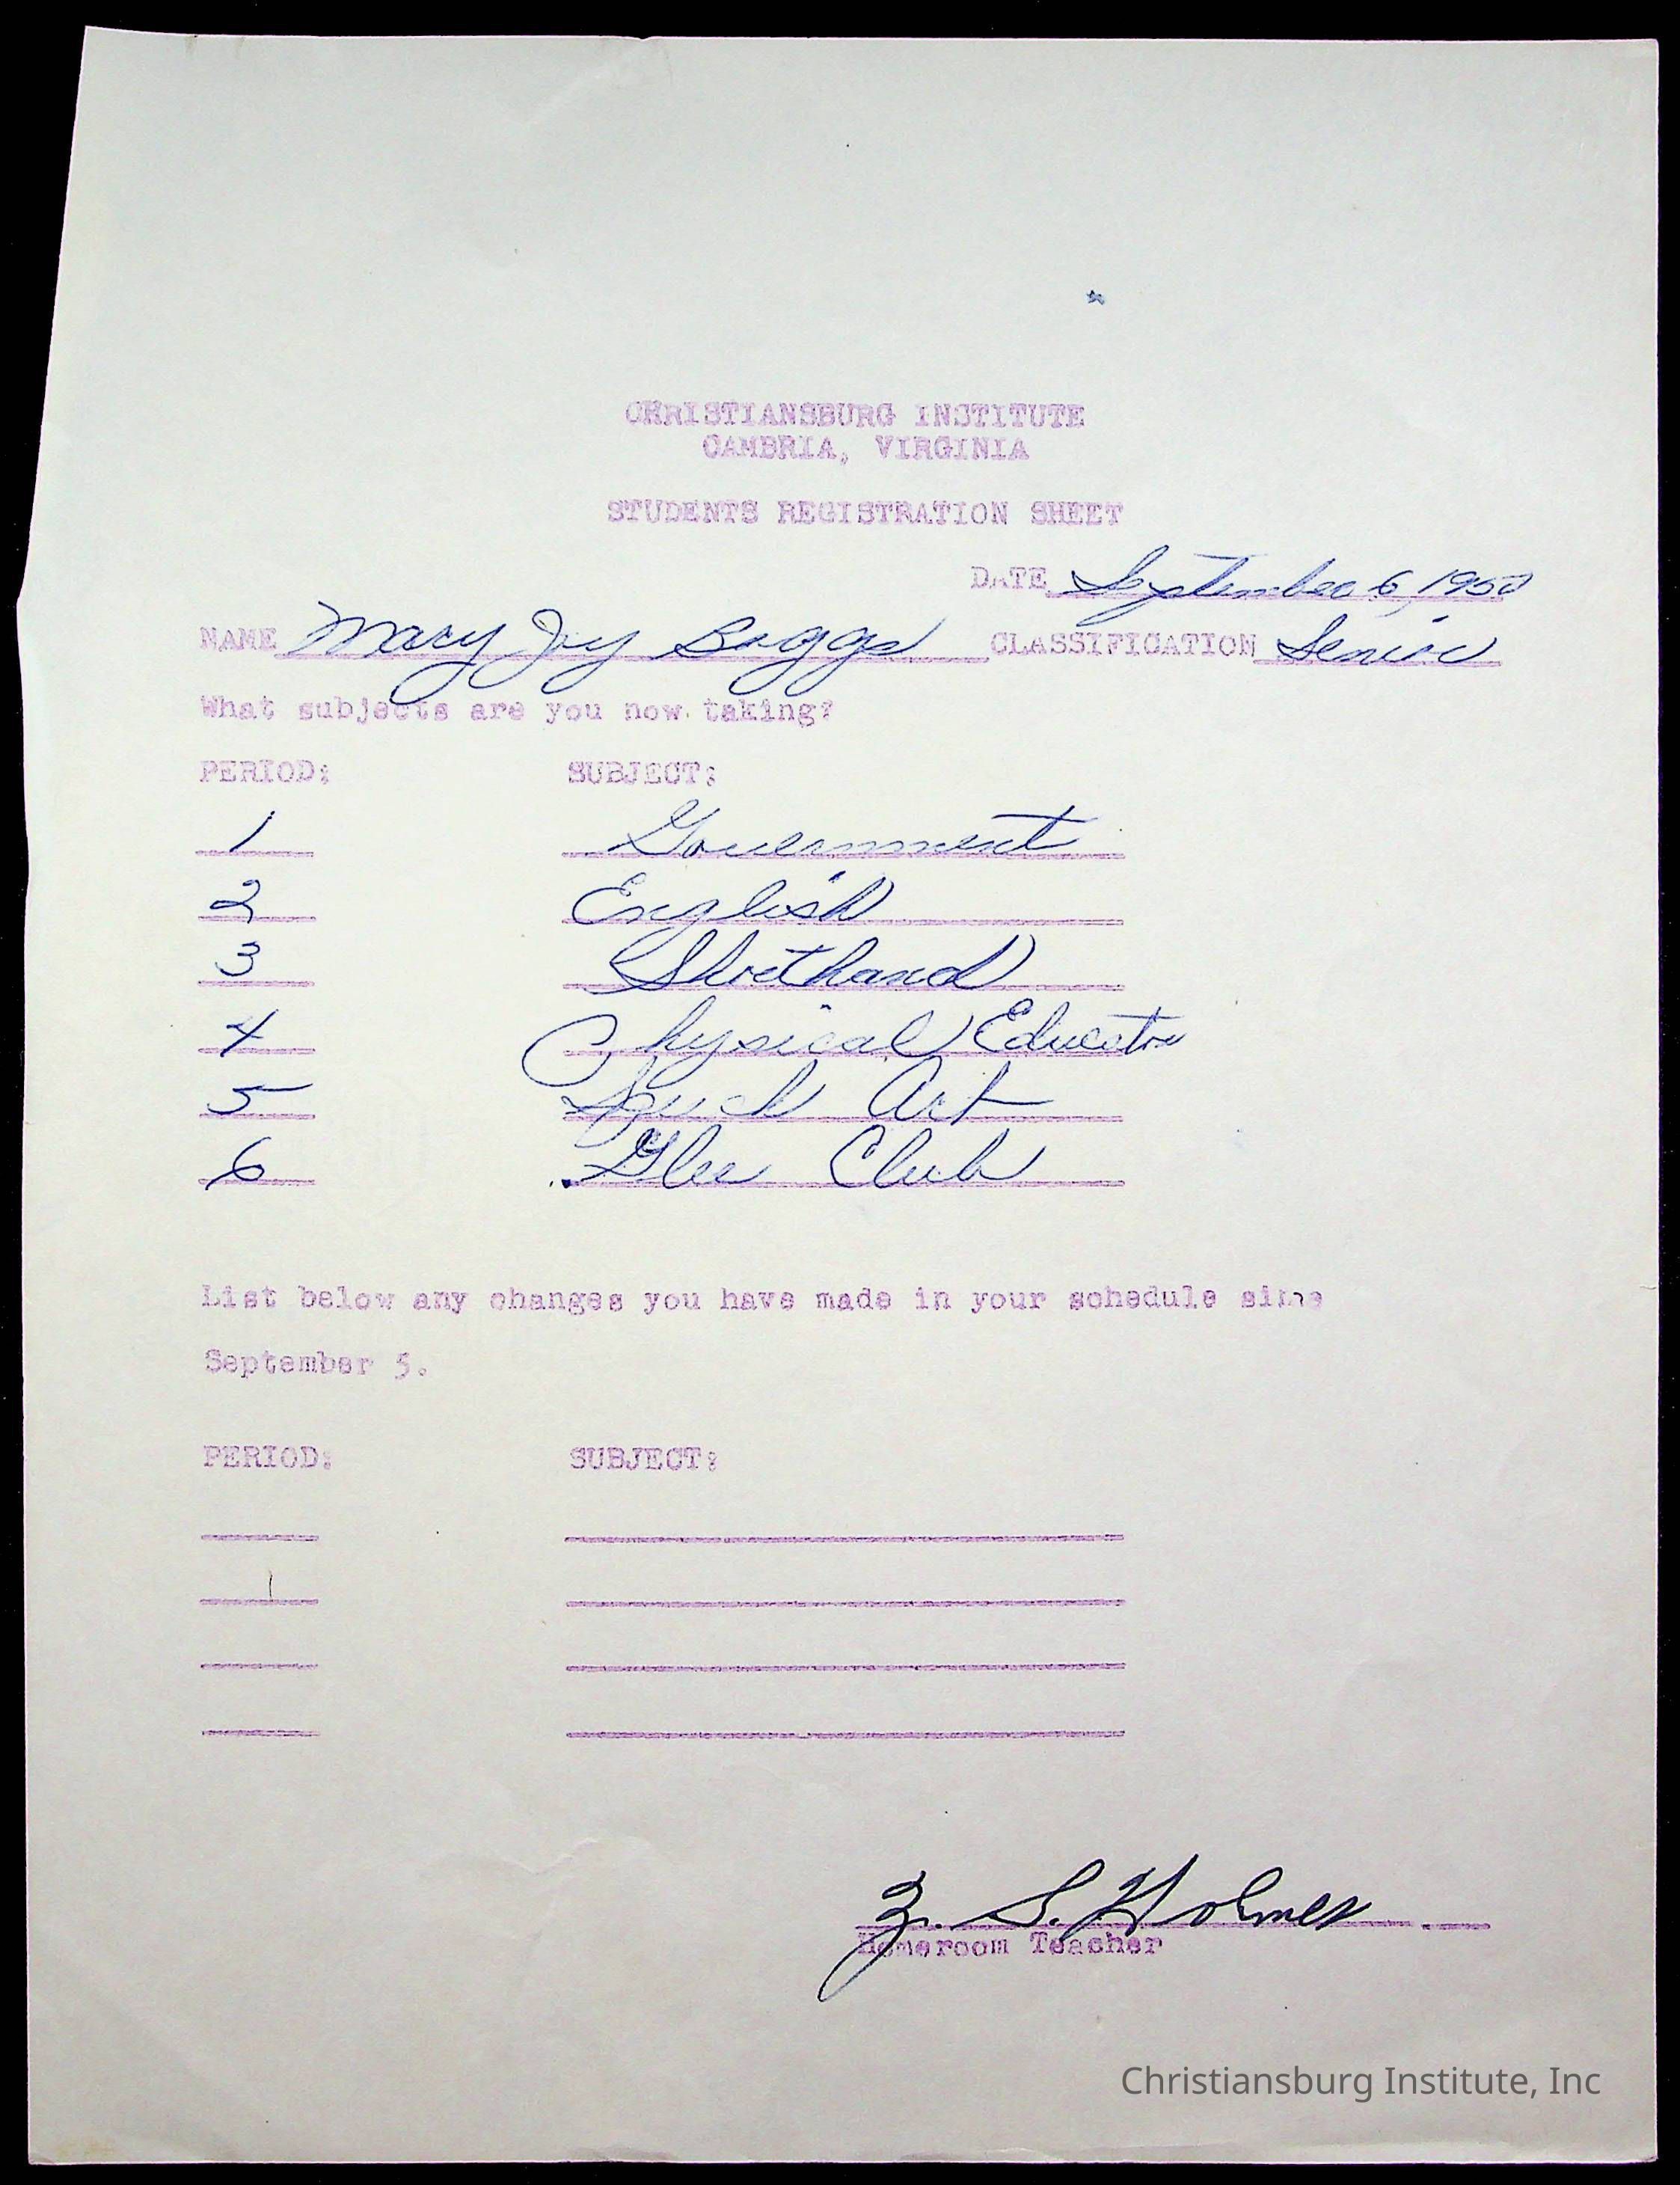 CHRISTIANSBURG INSTITUTE
CAMBRIA, VIRGINIA
STUDENTS REGISTRATION SHEET
DATE September 6, 1950
NAME Mary Joy Boggs CLASSIFICATION Senior
What subjects are you now taking?
PERIOD: SUBJECT:
1 Government
2 English
3 Shorthand
4 Physical Education
5 Speech Art
6 Glee Club
List below any changes you have made in your schedule since
September 5.
PERIOD: SUBJECT:
Z. S. Holmes
Homeroom Teacher
Christiansburg Institute, Inc